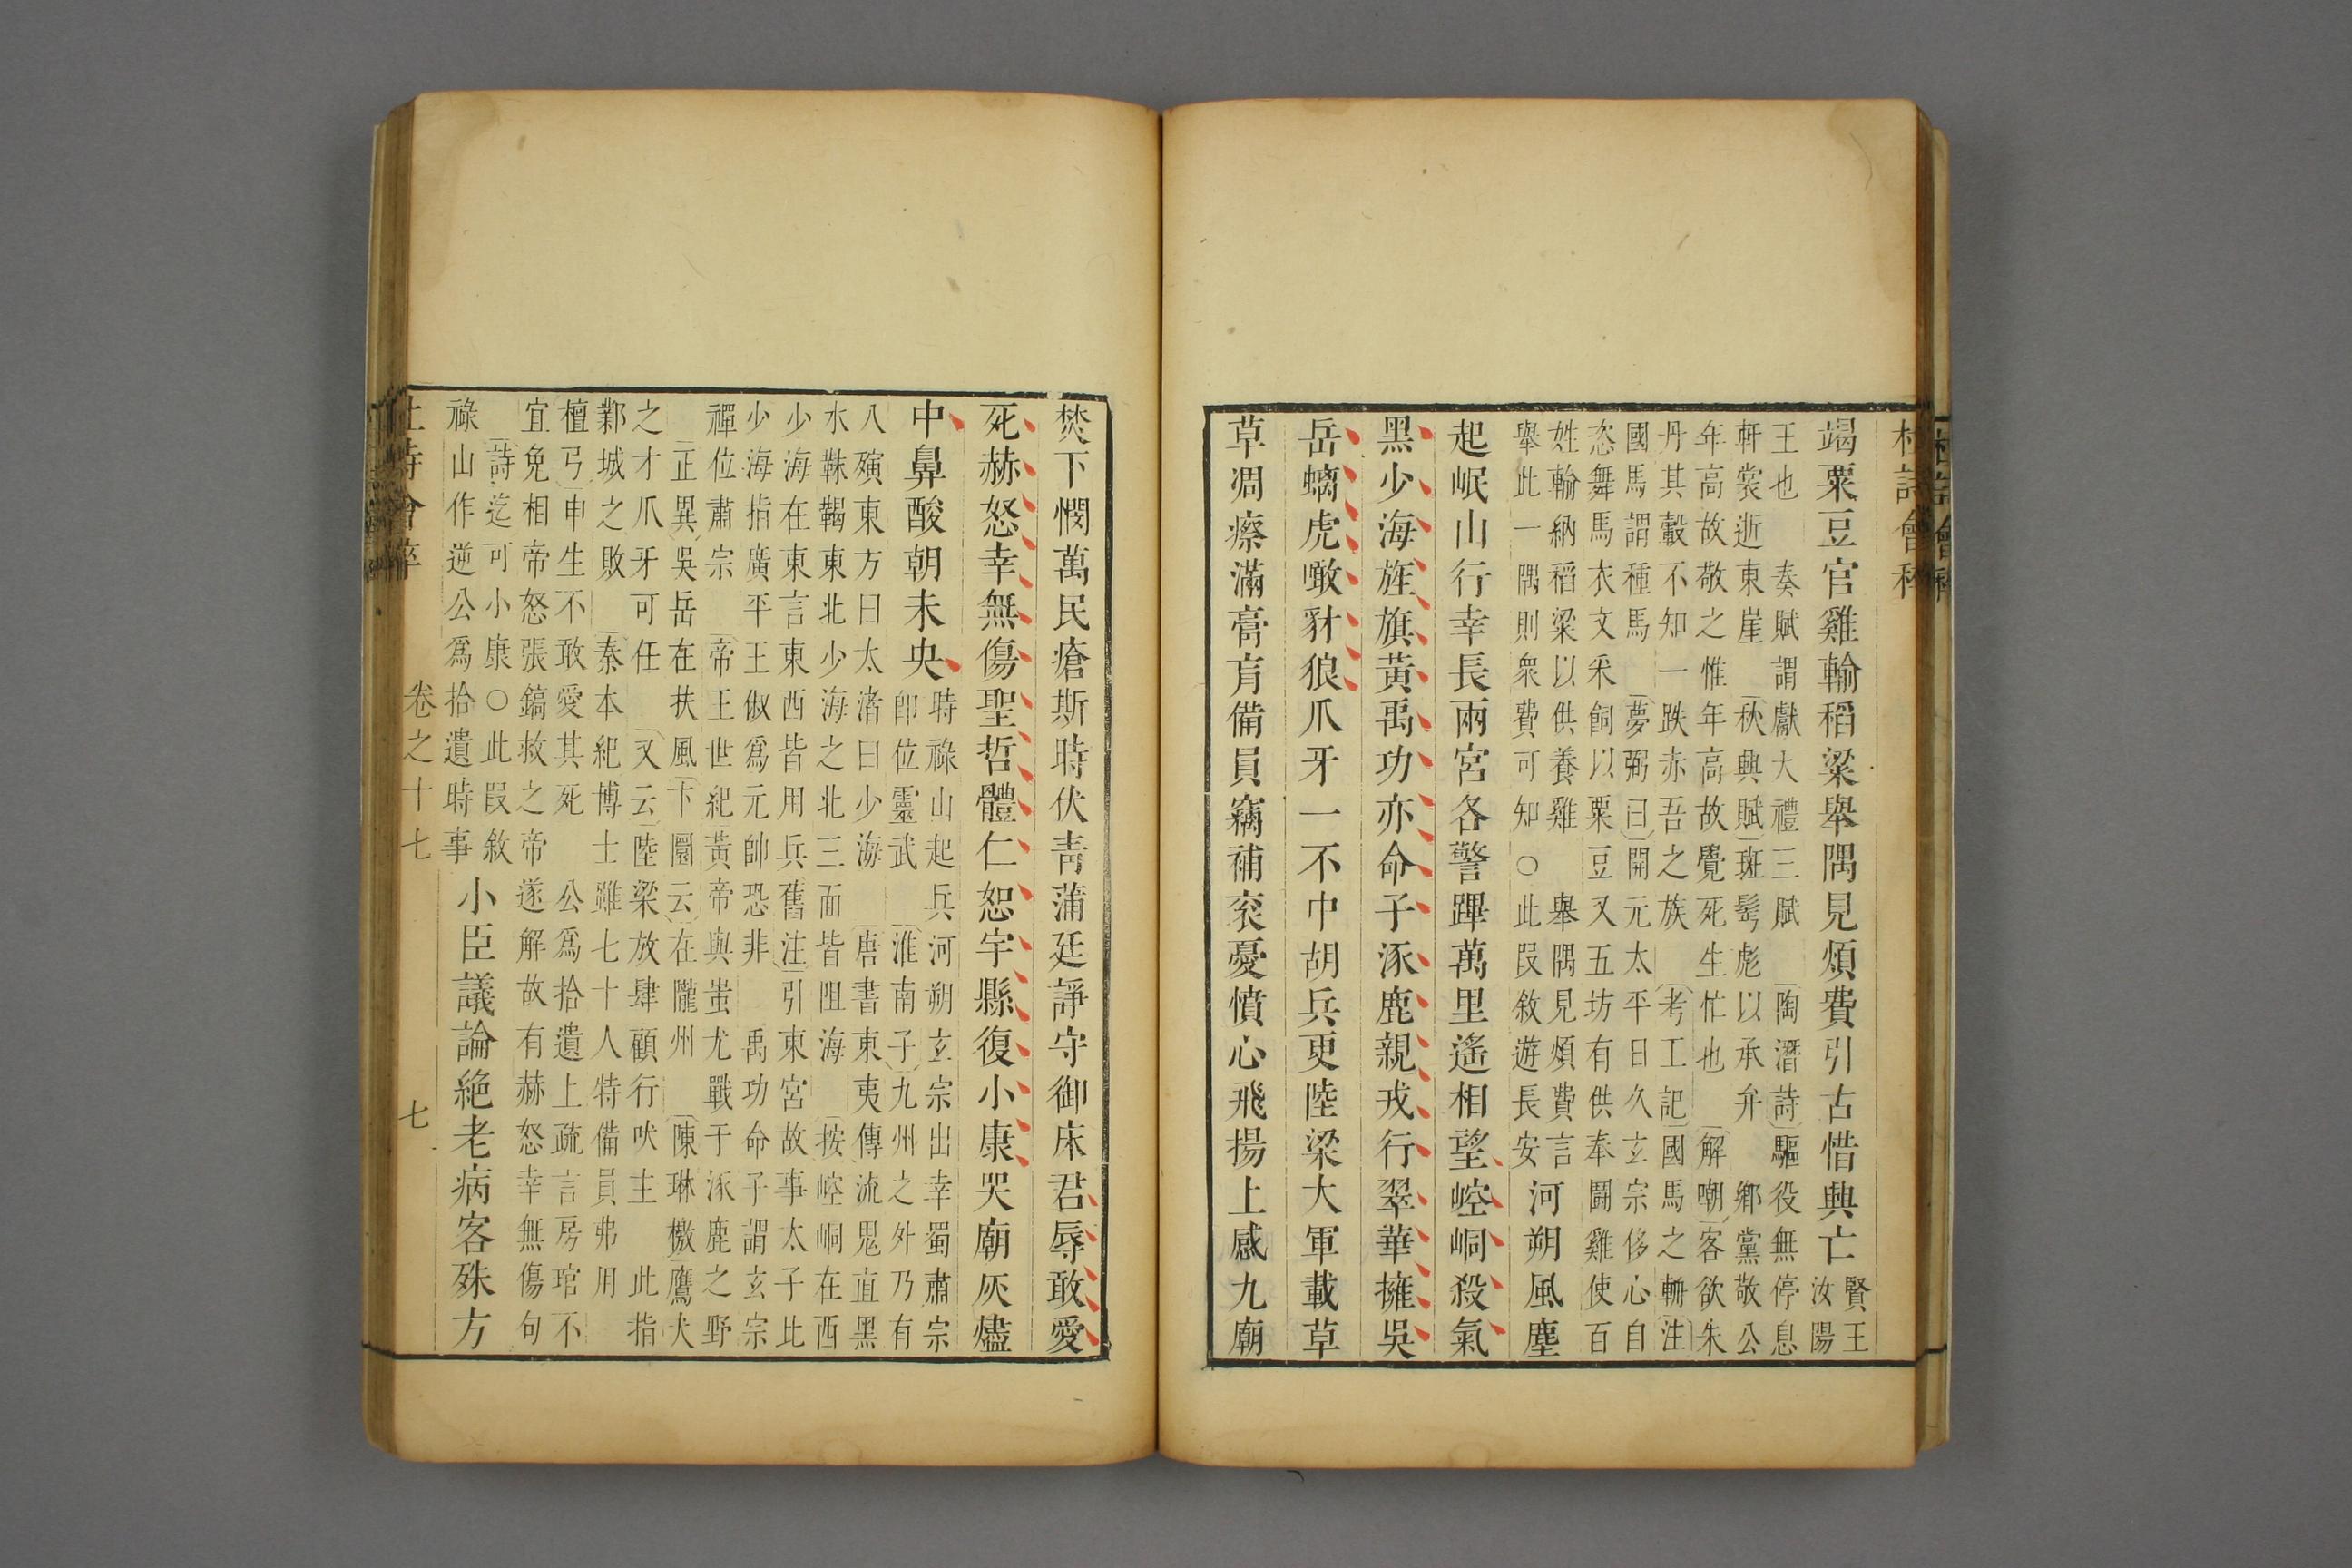 杜詩會稡
竭粟豆官雞輸稻粱舉隅見煩費引古惜興亡
賢王
汝陽
王也 奏賦謂獻大禮三賦 陶潛詩驅役無停息
軒裳逝東崖 秋興賦斑髩彪以承弁 鄉黨敬公
年高故敬之惟年高故覺死生忙也 解嘲客欲朱
丹其轂不知一跌赤吾之族 考工記國馬之輈注
國馬謂種馬 夢弼曰開元太平日久玄宗侈心自
恣舞馬衣文采飼以粟豆又五坊有供奉鬭雞使百
姓輸納稻粱以供養雞 舉隅見煩費言
舉此一隅則衆費可知○此段敘遊長安
河朔風塵
起岷山行幸長兩宮各警蹕萬里遙相望崆峒殺氣
黑少海旌旗黃禹功亦命子涿鹿親戎行翠華擁吳
岳螭虎噉豺狼爪牙一不中胡兵更陸梁大軍載草
草凋瘵滿膏肓備員竊補袞憂憤心飛揚上感九廟
焚下憫萬民瘡斯時伏青蒲廷諍守御床君辱敢愛
死赫怒幸無傷聖哲體仁恕宇縣復小康哭廟灰燼
中鼻酸朝未央
時祿山起兵河朔玄宗出幸蜀肅宗
即位靈武 淮南子九州之外乃有
八殥東方曰太渚曰少海 唐書東夷傳流鬼直黑
水靺鞨東北少海之北三面皆阻海 按崆峒在西
少海在東言東西皆用兵舊注引東宮故事太子比
少海指廣平王俶爲元帥恐非 禹功命子謂玄宗
禪位肅宗 帝王世紀黃帝與蚩尤戰于涿鹿之野
正異吳岳在扶風卞圜云在隴州 陳琳檄鷹犬
之才爪牙可任 又云陸梁放肆顧行吠主 此指
鄴城之敗 秦本紀博士雖七十人特備員弗用
檀弓申生不敢愛其死 公爲拾遺上疏言房琯不
宜免相帝怒張鎬救之帝遂解故有赫怒幸無傷句
詩迄可小康○此段敘
祿山作逆公爲拾遺時事
小臣議論絶老病客殊方
杜詩會稡 卷之十七 七